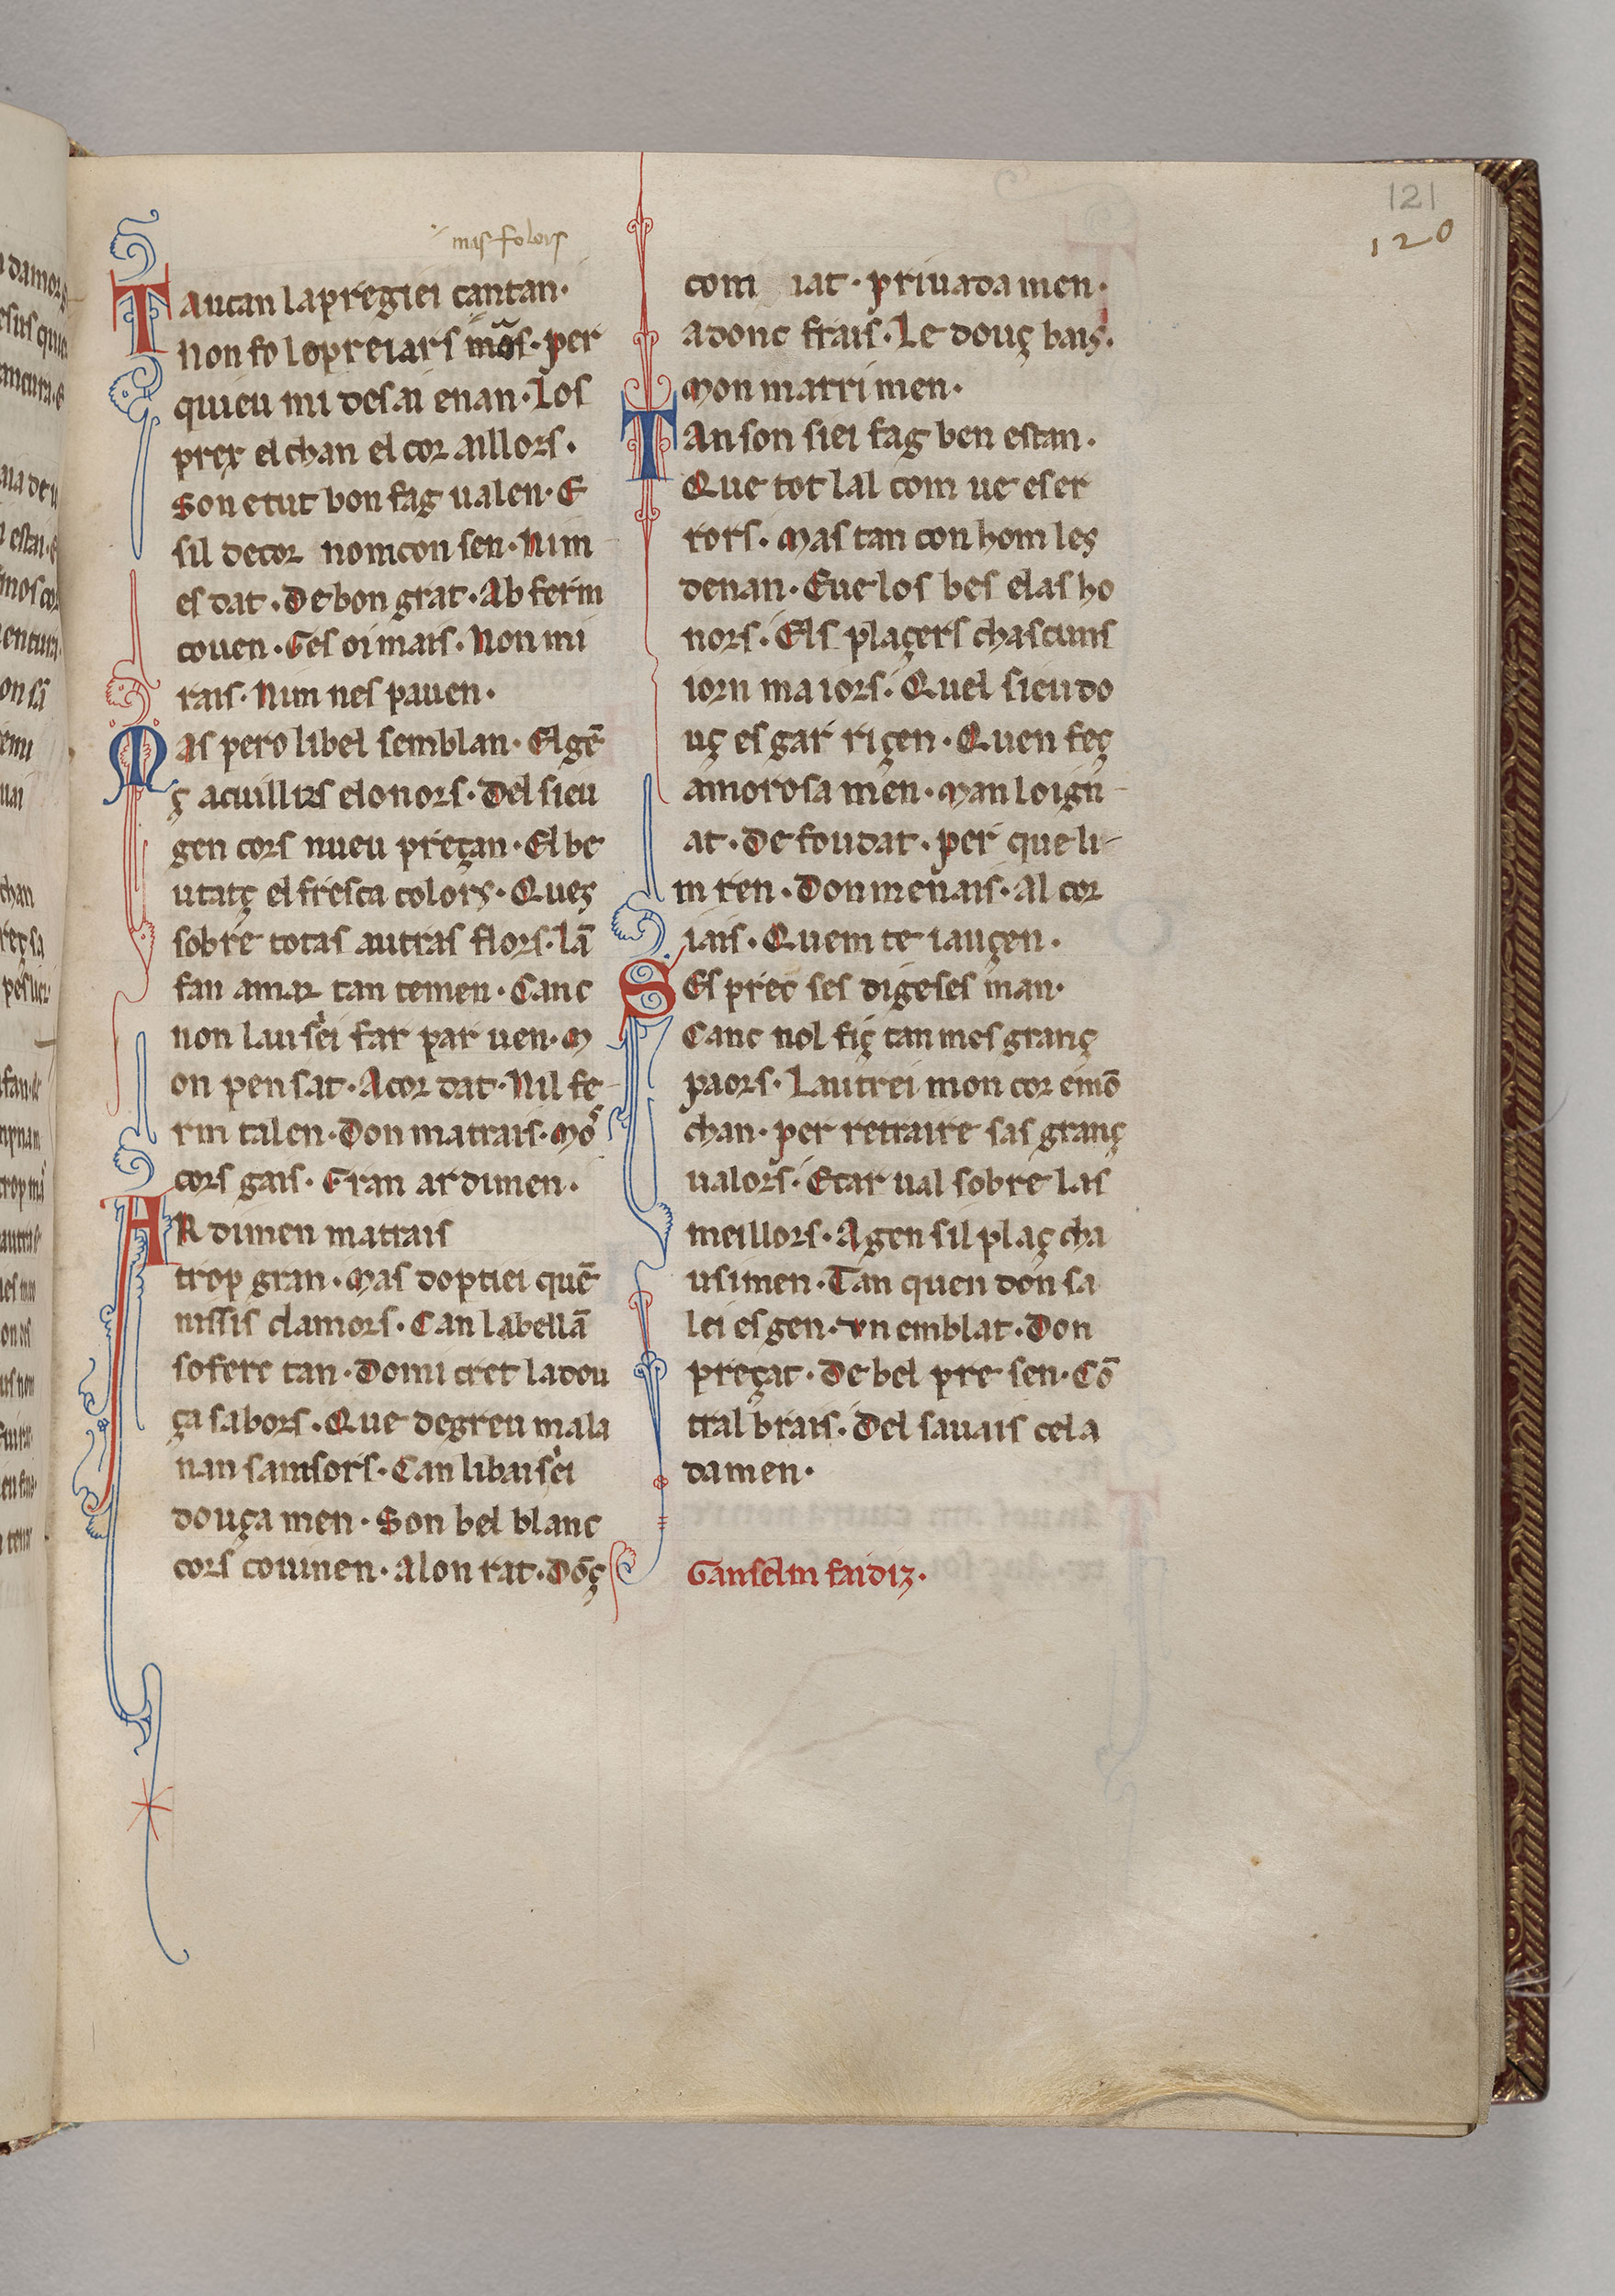 121
120
mas folors
Taucan la pregiei cantan·
Non fo lo preiars mas· per
quieu mi desai enan· Los
prex el chan el cor aillors·
Son e tut bon fag ualen· E
sil decor nomcon sen· Nim
es dat· De bon grat· Ab ferm
couen· Ges oimais· Non mi
rais· Nim nes pauen·
Mas pero li bel semblan· El gē
ç acuillirs el onors· Del sieu
gen cors nueu preçan· El be
utatç el fresca colors· Ques
sobre totas autras flors· Lā
fan amar tan temen· Canc
non lausei far par uen· M
on pensat· Acordat· Nil fe-
rm talen· Don matrais· Mō
cors gais· Gran ardimen·
ARdimen matrais
trop gran· Mas doptiei quē
nissis clamors· Can la bellā
sofere tan· Domi cret la dou
ça sabors· Que de greu mala
nan sam sors· Can li baisei
douça men· Son bel blanc
cors couinen· Alon rat· Dōç
com iat· priuada men·
adonc frais· Le douç bais·
Mon marrimen·
Tan son siei fag ben estan·
Que tot lal com ue es er
rors· Mas tan con hom les
denan· Eue los bes e las ho
nors· Els plaçers chascuns
iorn maiors· Quel sieu do
uç esgar riçen· Quen feç
amorosa men· Man loign
at· De foudat· per que li-
m ren· Don menais· Al cor
iais· Quem te iauçen·
SEs prec ses digeses man·
Canc nol fiç tan mes granç
paors· Lautrei mon cor e mō
chan· per retraire sas granç
ualors· E tar ual sobre las
meillors· A gensil plaç cha
usimen· Tan quen don sa
lei es gen· Vn emblat· Don
preçat· De bel presen· Cō
tral brais· Del sauais cela
damen·
Ganselm faidiz·